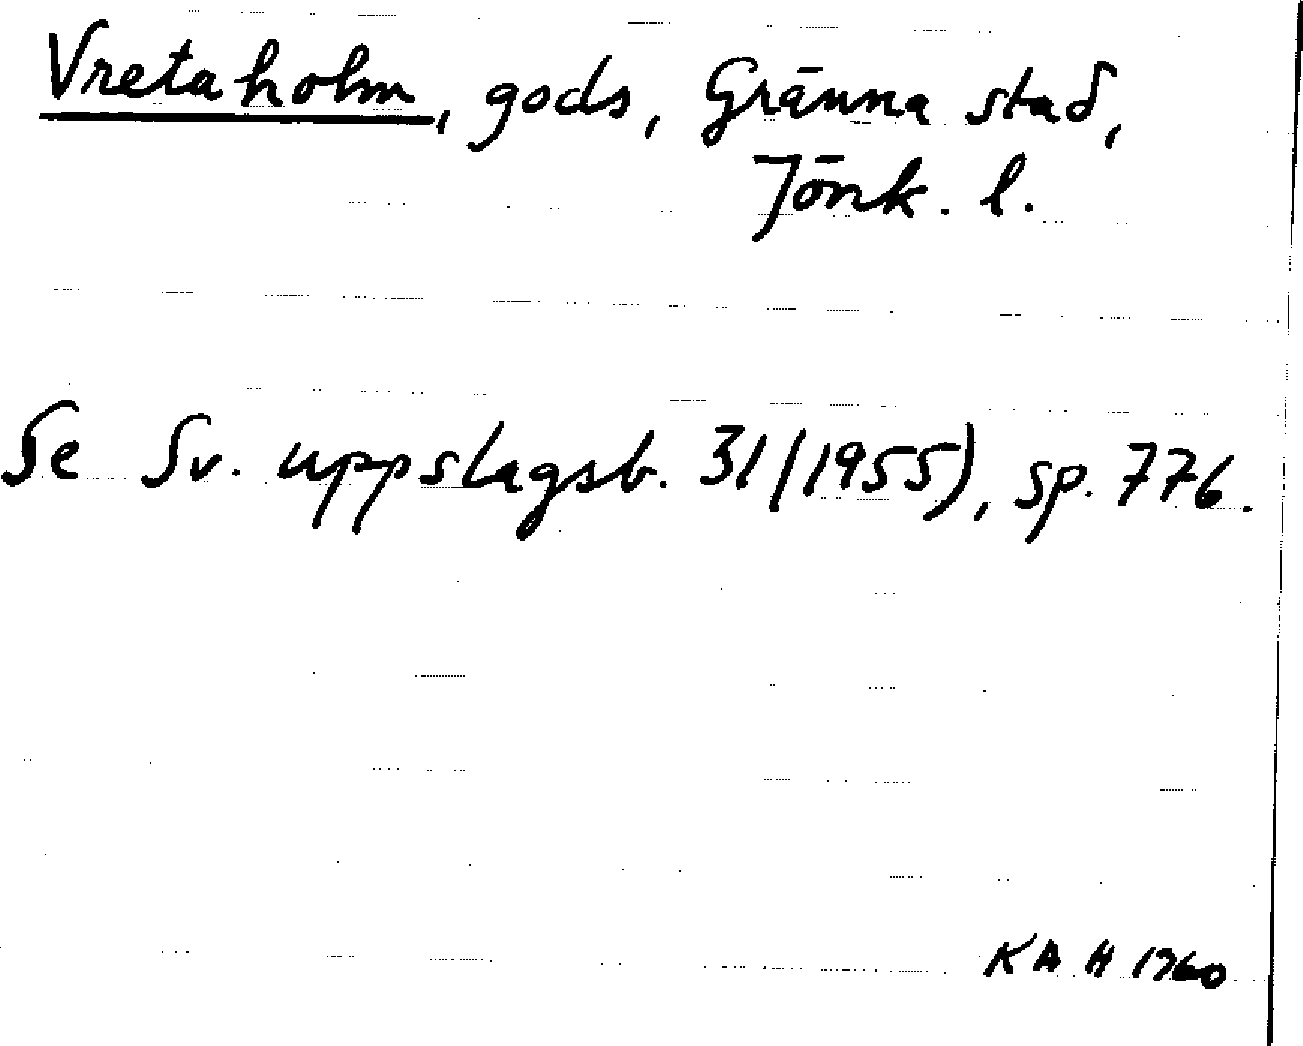 Vretaholm, gods, Gränna stad,
Jönk. l.
Se Sv. uppslagsb. 31(1955), sp. 776.
KA H 1960